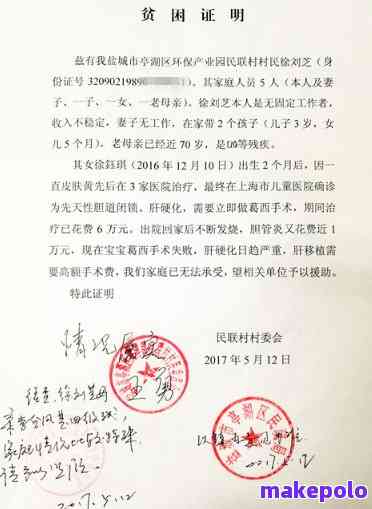 贫困证明
兹有我盐城市亭湖区环保产业园民联村村民徐刘芝(身
份证号 3209021989 )。其家庭人员 5 人(本人及妻
子、一子、一女、一老母亲)。徐刘芝本人是无固定工作者,
收入不稳定,妻子无工作,在家带 2 个孩子(儿子 3 岁,女
儿 5 个月),老母亲已经近 70 岁,是 等残疾。
其女徐鈺琪(2016 年 12 月 10 日)出生 2 个月后,因一
直皮肤黄先后在 3 家医院治疗、最终在上海市儿童医院确诊
为先天性胆道闭锁、肝硬化,需要立即做葛西手术,期间治
疗已花费 6 万元。出院回家后不断发烧,胆管炎又花费近 1
万元,现在宝宝葛西手术失败,肝硬化日趋严重,肝移植需
要高额手术费,我们家庭已无法承受,望相关单位予以援助。
特此证明
情况属实
民联村村委会
2017 年 5 月 12 日
经查,徐刘芝
家庭情况比较特殊
2017.5.12
2017.5.12
makepolo